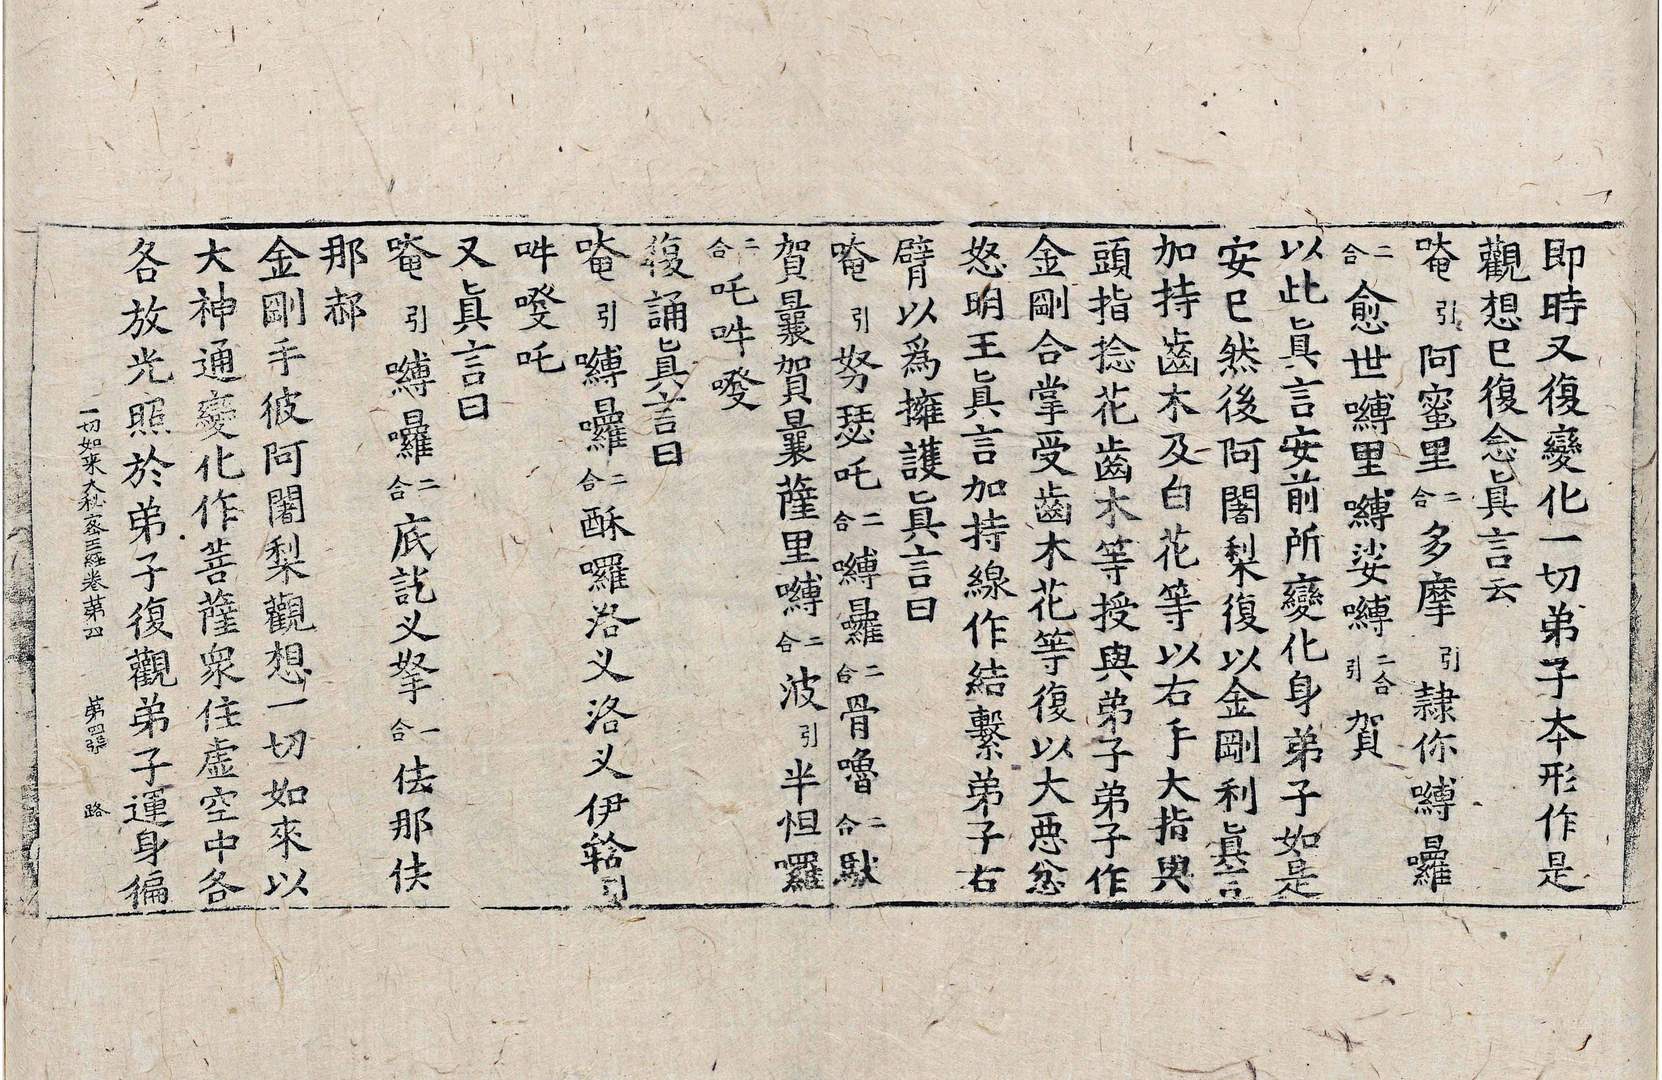 即時又復變化一切弟子本形作是
觀想已復念眞言云
唵引阿蜜里二合多摩引隷你嚩囉
二合愈世嚩里嚩娑嚩二合引賀
以此眞言安前所變化身弟子如是
安已然後阿闍梨復以金剛利眞言
加持齒木及白花等以右手大指與
頭指捻花齒木等授與弟子弟子作
金剛合掌受齒木花等復以大惡忿
怒明王眞言加持線作結繫弟子右
臂以爲擁護眞言曰
唵引努瑟吒二合嚩囉二合骨嚕二合馱
賀曩賀曩薩里嚩二合波引半怛囉
二合吒吽發
復誦眞言曰
唵引嚩囉二合酥囉洛义洛义伊䩭引
吽發吒
又眞言曰
唵引嚩囉二合底訖义拏一合佉那佉
那郝
金剛手彼阿闍梨觀想一切如來以
大神通變化作菩薩衆住虛空中各
各放光照於弟子復觀弟子運身徧
一切如來大秘密王經卷第四 第四張 路